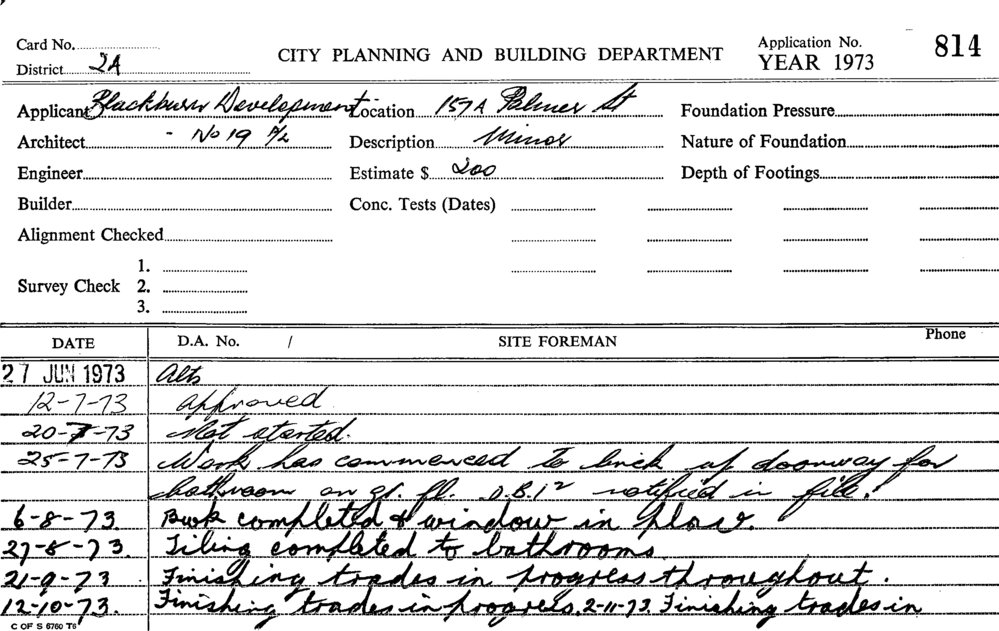 Card No.
District 2A
CITY PLANNING AND BUILDING DEPARTMENT
Application No. 814
YEAR 1973
Applicant Blackburn Development Location 157A Palmer St Foundation Pressure
Architect - No 19 P/L Description Minor Nature of Foundation
Engineer Estimate $ 200 Depth of Footings
Builder Conc. Tests (Dates)
Alignment Checked
1.
Survey Check 2.
3.
DATE D.A. No. / SITE FOREMAN Phone
27 JUN 1973 Alts
12-7-73 approved
20-7-73 Not started.
25-7-73 Work has commenced to brick up doorway for
bathroom on gr. fl. notified in file.
6-8-73. completed & window in place.
27-8-73. Tiling completed to bathrooms
21-9-73 Finishing trades in progress throughout.
12-10-73. Finishing trades in progress. 2-11-73. Finishing trades in
C OF S 6760 T6